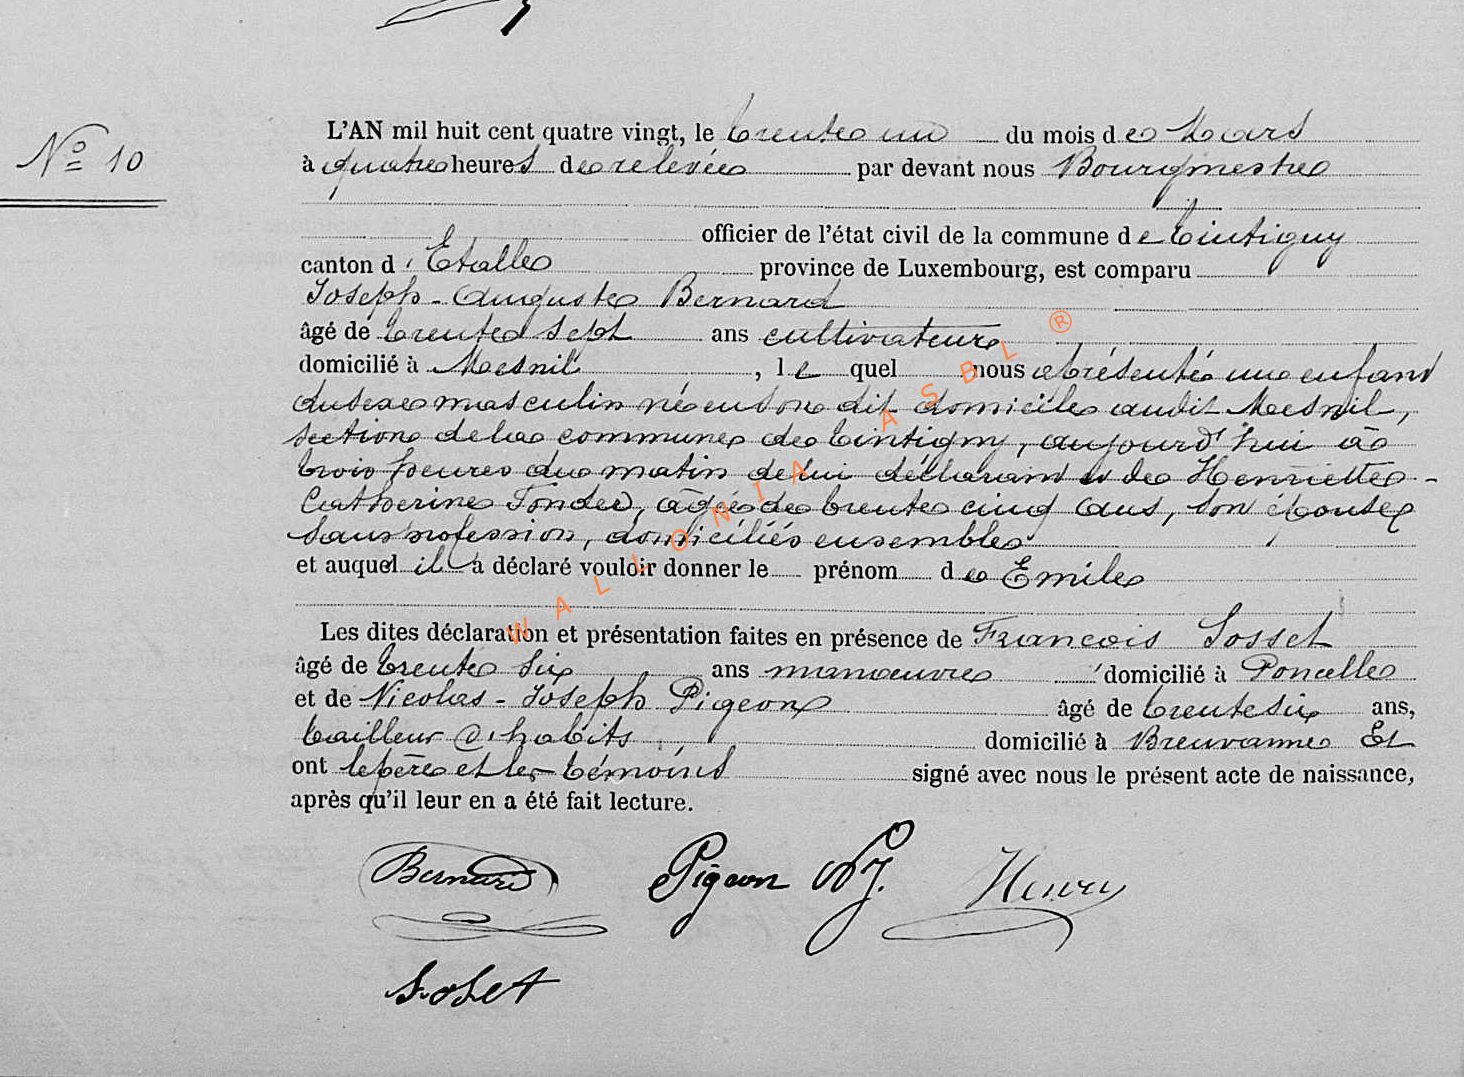 N° 10
L'AN mil huit cent quatre vingt, le trente un du mois de Mars
à quatre heures de relevée par devant nous Bourgmestre
officier de l'état civil de la commune de Tintigny
canton d'Etalle province de Luxembourg, est comparu
Joseph-Auguste Bernard
âgé de trente sept ans cultivateur
domicilié à Mesnil, le quel nous a présenté un enfant
du sexe masculin né en son dit domicile audit Mesnil,
section de la commune de Tintigny, aujourd'hui à
trois heures du matin de lui déclarant et de Henriette-
Catherine âgée de trente cinq ans, son épouse
sans profession, domiciliés ensemble
et auquel il a déclaré vouloir donner le prénom de Emile
Les dites déclaration et présentation faites en présence de François Sosset
âgé de trente six ans manœuvre domicilié à Poncelle
et de Nicolas-Joseph Pigeon âgé de trente six ans,
tailleur d'habits domicilié à Breuvanne Et
ont le père et les témoins signé avec nous le présent acte de naissance,
après qu'il leur en a été fait lecture.
Bernard Pigeon NJ. Henry
Soset
WALLONIA ASBL ®